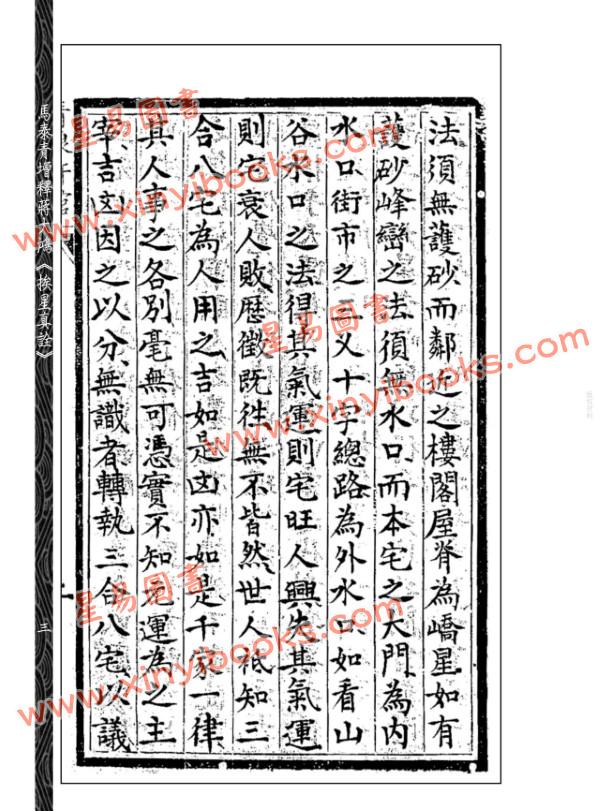 法須無護砂而鄰近之樓閣屋脊為嶠星如有
護砂峰巒之法須無水口而本宅之大門為内
水口街市之三义十字總路為外水口如看山
谷水口之法得其氣運則宅旺人興失其氣運
則宅衰人敗歷徵既徃無不皆然世人祗知三
合八宅為人用之吉如是凶亦如是千家一律
其人事之各別毫無可憑實不知元運為之主
宰吉凶因之以分無識者轉執三合八宅以議
馬泰青增釋蔣大鴻《挨星真詮》
三
星易圖書
www.xinyibooks.com
星易圖書
www.xinyibooks.com
星易圖書
www.xinyibooks.com